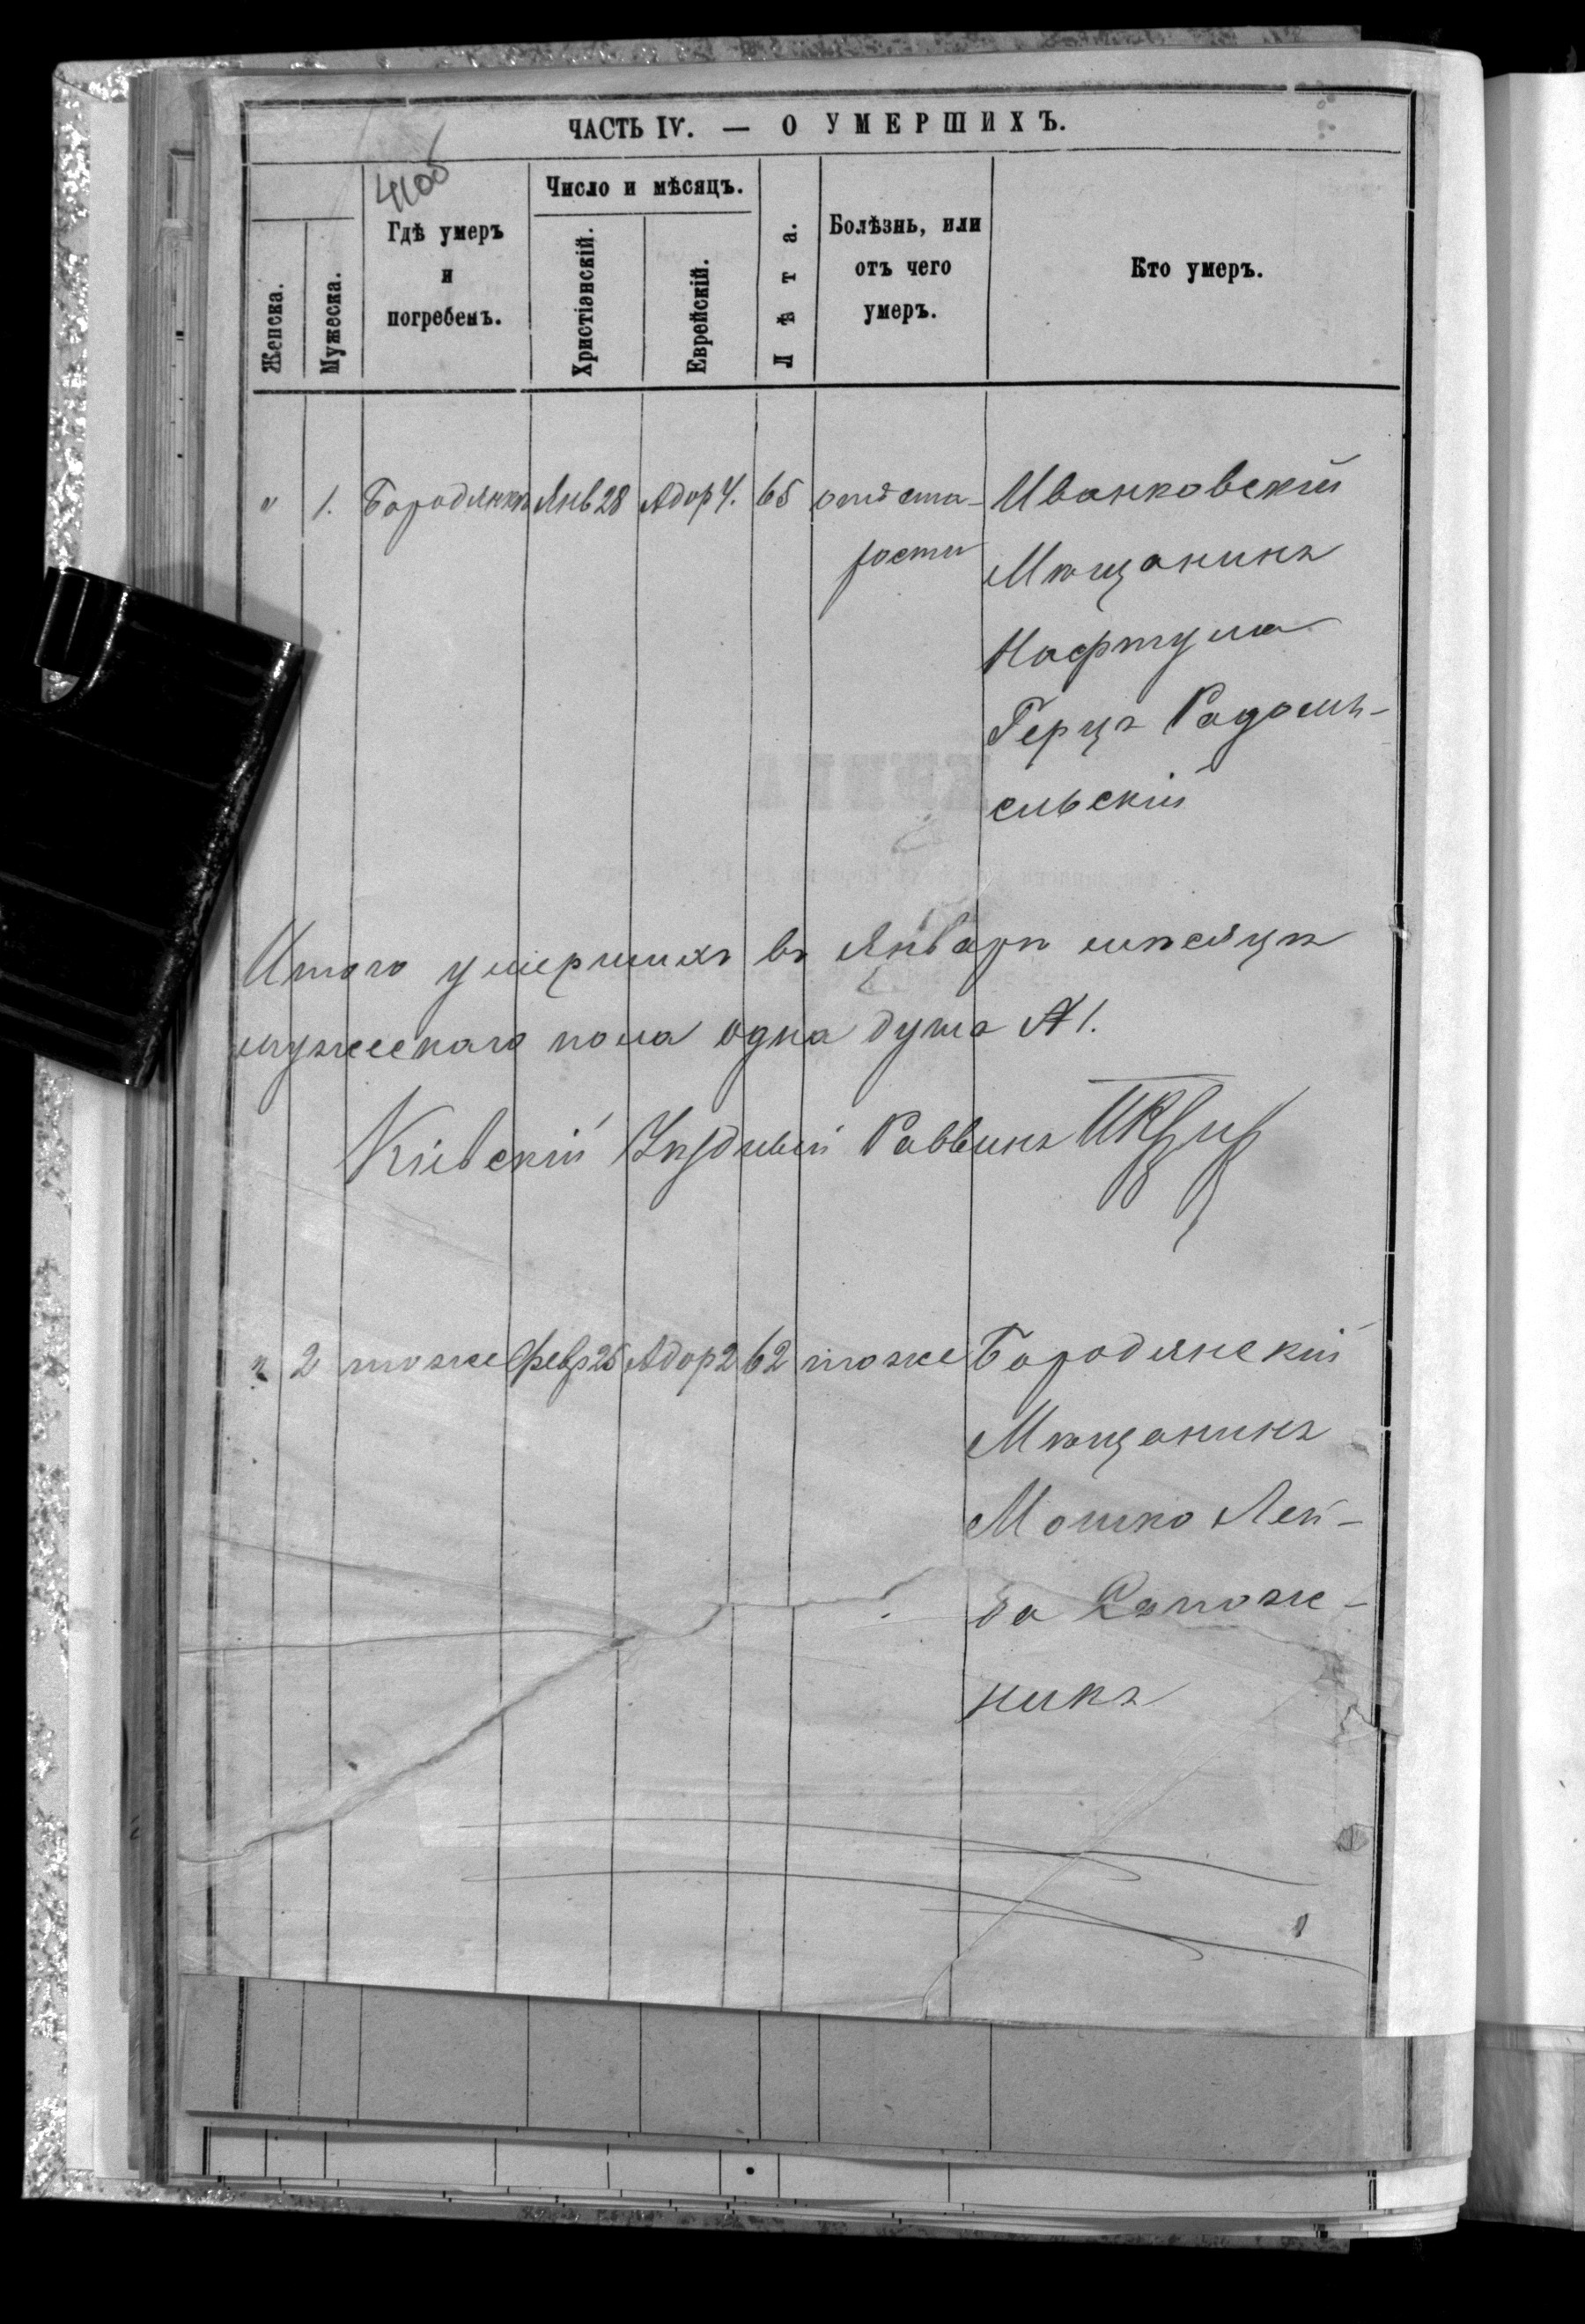 ЧАСТЬ IV. — О УМЕРШИХЪ.
Женска.
Мужеска.
Гдѣ умеръ
и
погребенъ.
Число и мѣсяцъ.
Христіанскій.
Еврейскій.
Лѣта.
Болѣзнь, или
отъ чего
умеръ.
Кто умеръ.
" 1. Бородянкѣ Янв 28 Адор 4. 65 отъ ста- Иванковскій
рости Мѣщанинъ
Нафтула
Герцъ Радомы-
сльскій
Итого умершихъ въ Январѣ мѣсяцѣ
мужескаго пола одна душа № 1.
Кіевскій Уѣздный Раввинъ
" 2 тоже Февр 25 Адор 2 62 тоже Бородянскій
Мѣщанинъ
Мошко Лей-
ба Сапож-
никъ